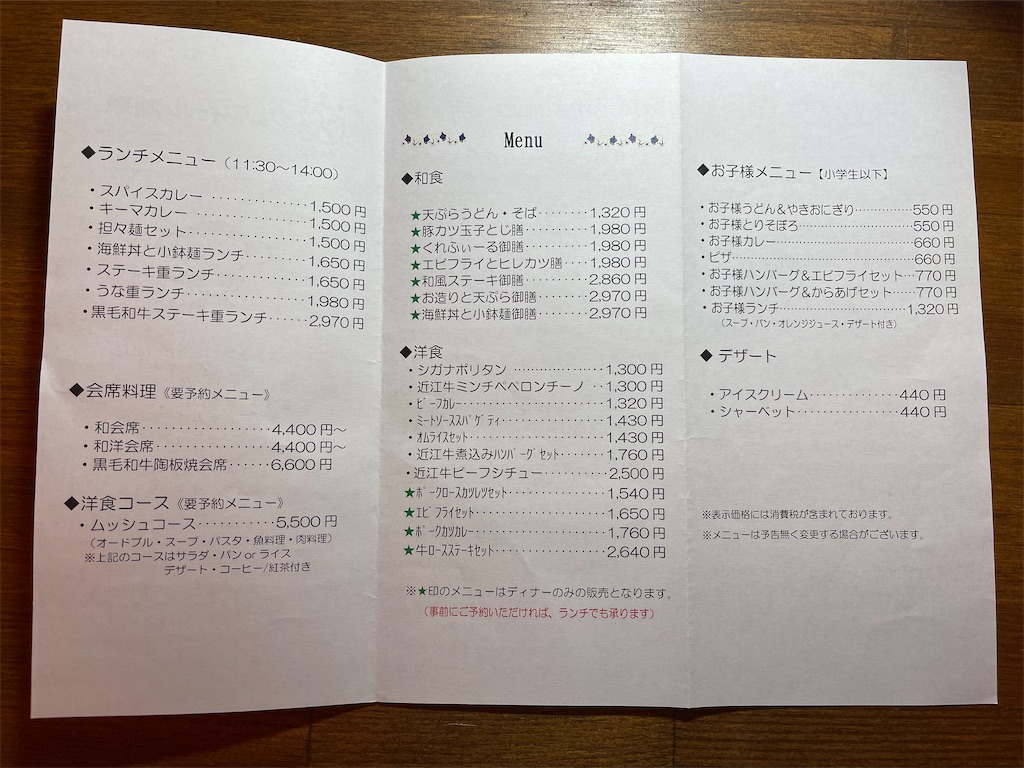 ◆ランチメニュー（11:30～14:00）
・スパイスカレー ‥‥‥‥‥‥1,500円
・キーマカレー ‥‥‥‥‥‥1,500円
・担々麺セット‥‥‥‥‥‥1,500円
・海鮮丼と小鉢麺ランチ‥‥‥‥1,650円
・ステーキ重ランチ‥‥‥‥‥‥1,650円
・うな重ランチ‥‥‥‥‥‥1,980円
・黒毛和牛ステーキ重ランチ‥‥2,970円
◆会席料理《要予約メニュー》
・和会席‥‥‥‥‥‥4,400円～
・和洋会席‥‥‥‥‥‥4,400円～
・黒毛和牛陶板焼会席‥‥‥6,600円
◆洋食コース《要予約メニュー》
・ムッシュコース‥‥‥‥‥5,500円
（オードブル・スープ・パスタ・魚料理・肉料理）
※上記のコースはサラダ・パン or ライス
デザート・コーヒー/紅茶付き
Menu
◆和食
★天ぷらうどん・そば‥‥‥‥1,320円
★豚カツ玉子とじ膳‥‥‥‥1,980円
★くれふぃーる御膳‥‥‥‥1,980円
★エビフライとヒレカツ膳‥‥1,980円
★和風ステーキ御膳‥‥‥‥2,860円
★お造りと天ぷら御膳‥‥‥‥2,970円
★海鮮丼と小鉢麺御膳‥‥‥2,970円
◆洋食
・シガナポリタン ‥‥‥‥‥‥1,300円
・近江牛ミンチペペロンチーノ ‥1,300円
・ビーフカレー‥‥‥‥‥‥1,320円
・ミートソーススパゲティ‥‥‥‥‥‥1,430円
・オムライスセット‥‥‥‥‥‥1,430円
・近江牛煮込みハンバーグセット‥‥‥1,760円
・近江牛ビーフシチュー‥‥‥‥2,500円
★ポークロースカツレツセット‥‥‥‥‥1,540円
★エビフライセット‥‥‥‥‥‥1,650円
★ポークカツカレー‥‥‥‥‥‥1,760円
★牛ロースステーキセット‥‥‥‥‥‥2,640円
※★印のメニューはディナーのみの販売となります。
（事前にご予約いただければ、ランチでも承ります）
◆お子様メニュー【小学生以下】
・お子様うどん＆やきおにぎり‥‥‥‥550円
・お子様とりそぼろ‥‥‥‥‥‥550円
・お子様カレー‥‥‥‥‥‥660円
・ピザ‥‥‥‥‥‥‥‥660円
・お子様ハンバーグ＆エビフライセット‥770円
・お子様ハンバーグ＆からあげセット‥‥770円
・お子様ランチ‥‥‥‥‥‥1,320円
（スープ・パン・オレンジジュース・デザート付き）
◆ デザート
・アイスクリーム‥‥‥‥‥‥440円
・シャーベット‥‥‥‥‥‥440円
※表示価格には消費税が含まれております。
※メニューは予告無く変更する場合がございます。